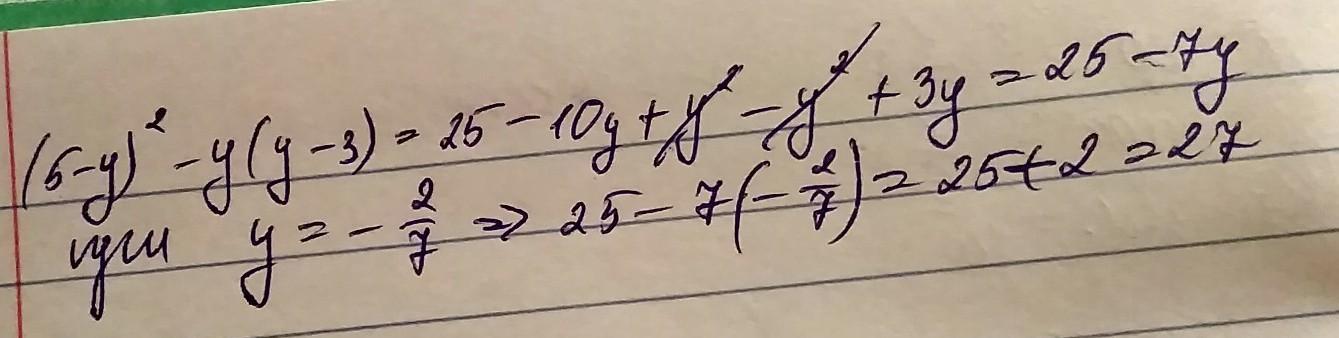 (5-y)² - y(y-3) = 25 - 10y + y² - y² + 3y = 25 - 7y
при y = - 2/7 ⇒ 25 - 7(- 2/7) = 25 + 2 = 27